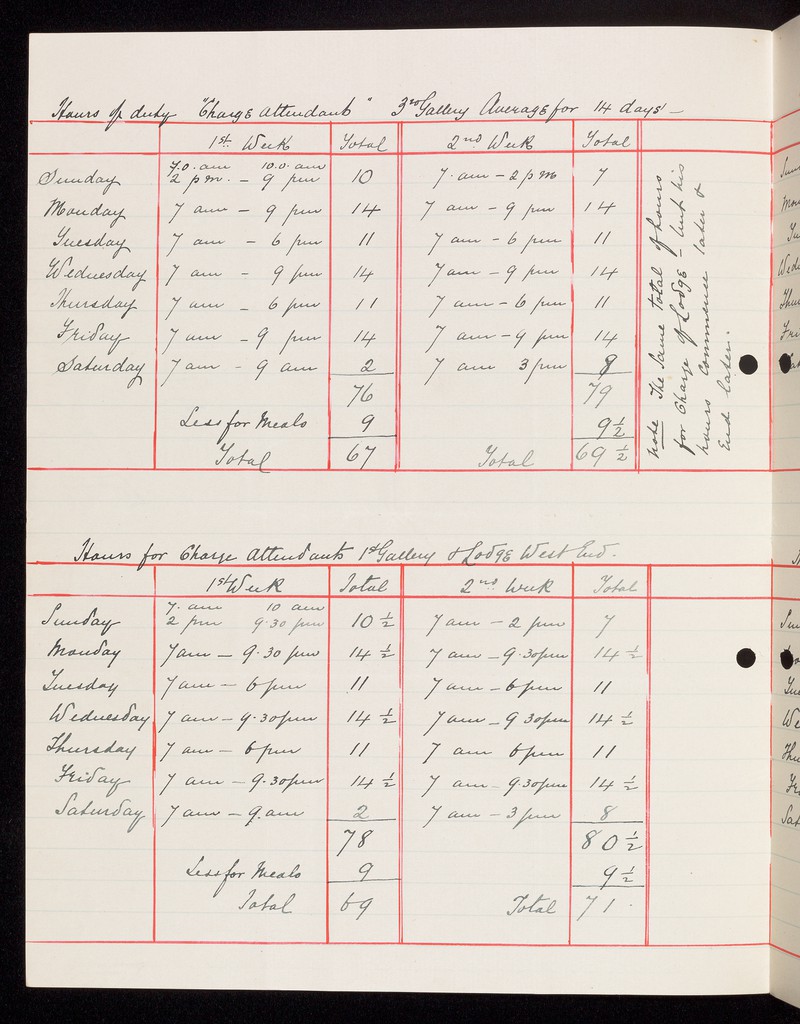 Hours of duty "Charge Attendant" 3rd Gallery Average for 14 days! —
1st Week Total 2nd Week Total
7.0. am 10.0. am
Sunday 2 pm. – 9 pm 10 7. am – 2 pm 7
Monday 7 am – 9 pm 14 7 am – 9 pm 14
Tuesday 7 am – 6 pm 11 7 am – 6 pm 11
Wednesday 7 am – 9 pm 14 7 am – 9 pm 14
Thursday 7 am – 6 pm 11 7 am – 6 pm 11
Friday 7 am – 9 pm 14 7 am – 9 pm 14
Saturday 7 am – 9 am 2 7 am 3 pm 8
76 79
Less for Meals 9 9 1/2
Total 67 Total 69 1/2
Note The Same total of hours
for Charge of Lodge – but his
hours Commence later &
End later.
Hours for Charge Attendants 1st Gallery & Lodge West End.
1st Week Total 2nd Week Total
7. am 10 am
Sunday 2 pm 9.30 pm 10 1/2 7 am – 2 pm 7
Monday 7 am – 9.30 pm 14 1/2 7 am – 9.30 pm 14 1/2
Tuesday 7 am – 6 pm 11 7 am – 6 pm 11
Wednesday 7 am – 9.30 pm 14 1/2 7 am – 9 30 pm 14 1/2
Thursday 7 am – 6 pm 11 7 am 6 pm 11
Friday 7 am – 9.30 pm 14 1/2 7 am – 9.30 pm 14 1/2
Saturday 7 am – 9. am 2 7 am – 3 pm 8
78 80 1/2
Less for Meals 9 9 1/2
Total 69 Total 71.